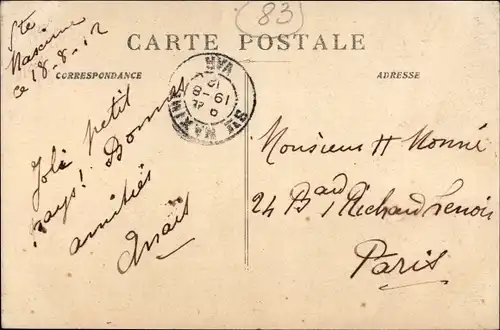 83
Ste
Maxime
ce 18-8-12
CARTE POSTALE
CORRESPONDANCE
ADRESSE
STE MAXIME
VAR
19-8
12
Joli petit
pays! Bonnes
amitiés
Anaïs
Monsieur H Monné
24 Bard Richard Lenoir
Paris